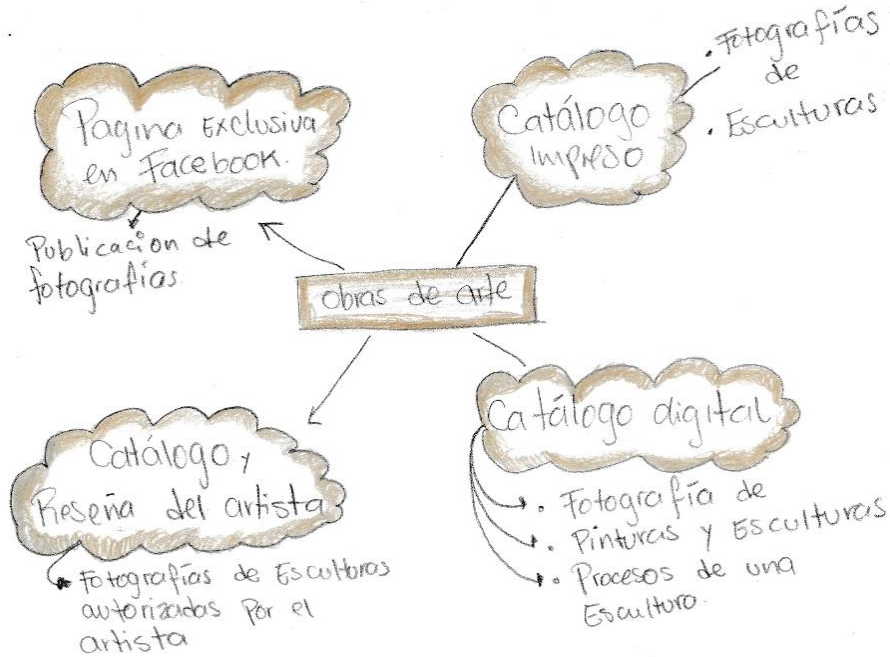 Pagina Exclusiva
en Facebook.
Publicacion de
fotografías
Catálogo
Impreso
• Fotografías
de
• Esculturas
obras de arte
Catálogo y
Reseña del artista
Fotografías de Esculturas
autorizadas por el
artista
Catálogo digital
• Fotografía de
• Pinturas y Esculturas
• Procesos de una
Escultura.